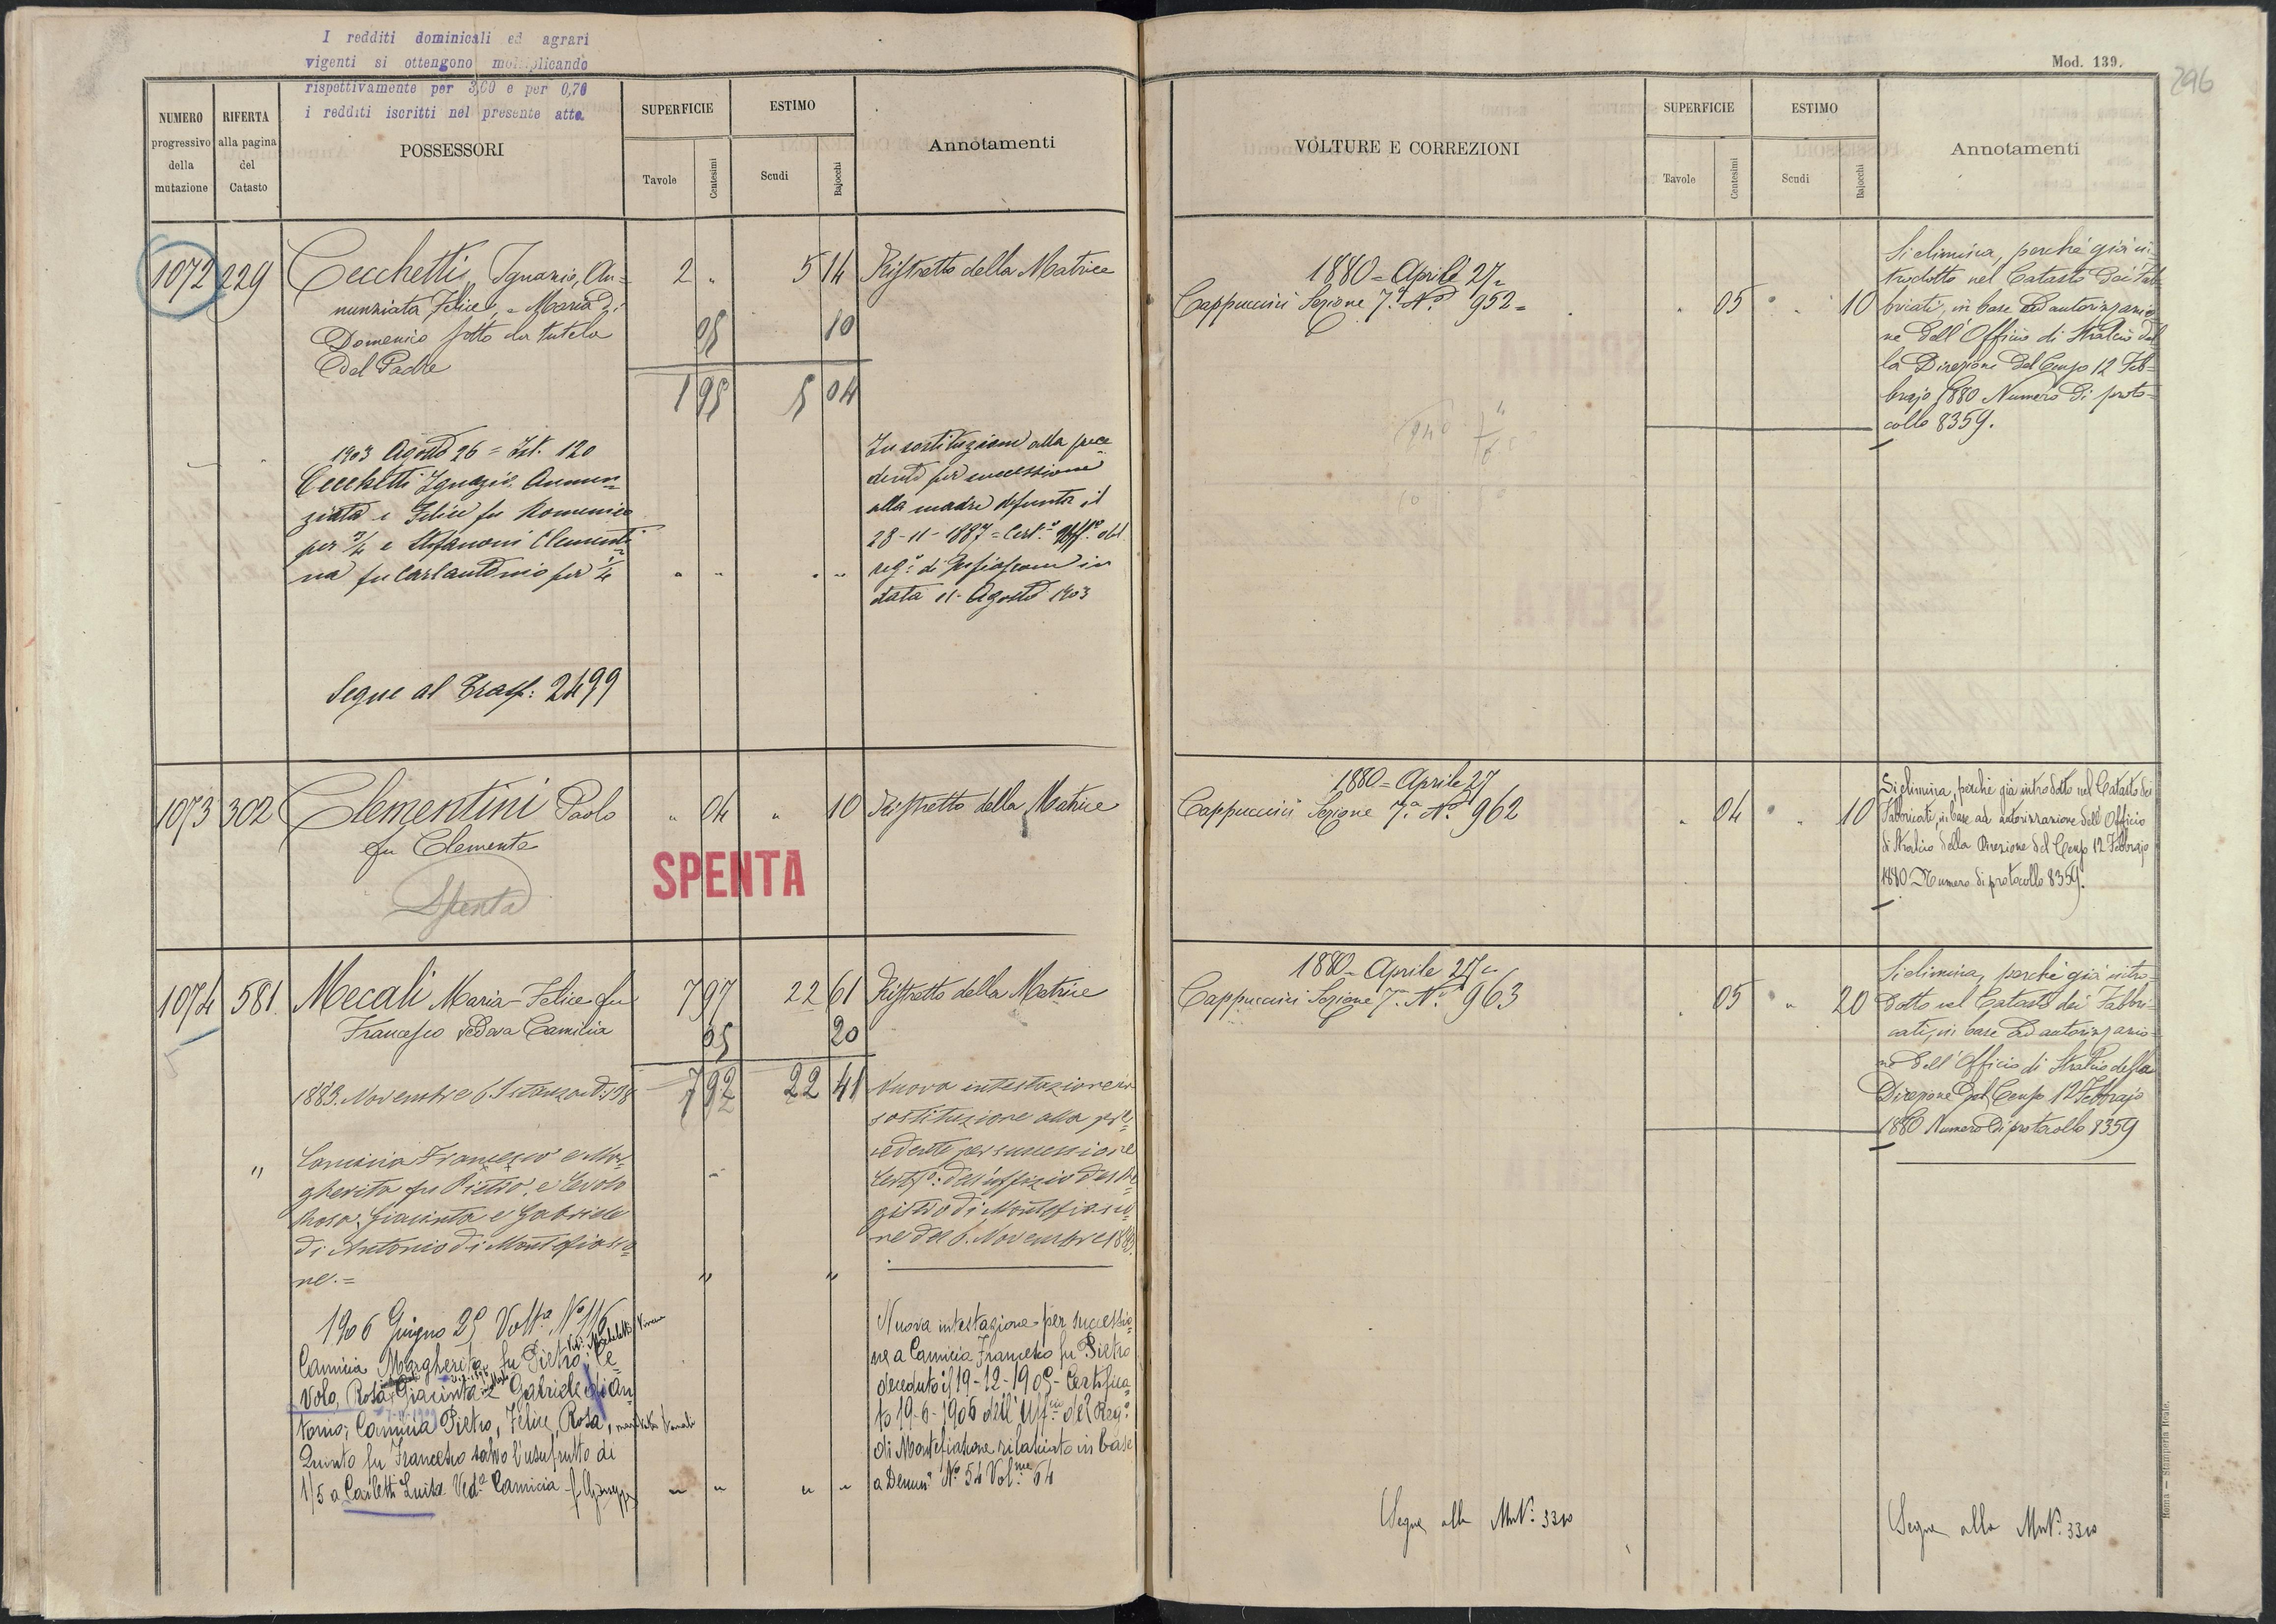 I redditi dominicali ed agrari
vigenti si ottengono moltiplicando
rispettivamente per 3,60 e per 0,70
i redditi iscritti nel presente atto.
NUMERO
progressivo
della
mutazione
RIFERTA
alla pagina
del
Catasto
POSSESSORI
SUPERFICIE
Tavole
Centesimi
ESTIMO
Scudi
Bajocchi
Annotamenti
1072 229 Cecchetti Ignazio, An= 2 " 5 14 Ristretto della Matrice
nunziata Felice, e Maria di
Domenico sotto la tutela 05 10
del Padre
1 95 5 04
1903 Agosto 26 = Ist. 120
Cecchetti Ignazio, Annun=
ziata e Felice fu Domenico
per 3/4 e Stefanoni Clementi=
na fu Carlantonio per 1/4 " " " "
In sostituzione alla prece
dente per successione
alla madre defunta il
28-11-1887 = Cert.o Uff.o del
reg.o di Montefiascone in
data 11 Agosto 1903
Segue al Trasp: 2499
1073 302 Clementini Paolo " 04 " 10 Ristretto della Matrice
fu Clemente
SPENTA
Spenta
1074 581 Mecali Maria Felice fu 7 97 22 61 Ristretto della Matrice
Francesco vedova Camicia 05 20
1883. Novembre 6. Istanza N. 398 7 92 22 41
Nuova intestazione in
sostituzione alla pre=
cedente per successione
Certifo: dell'uffizio del Re=
gistro di Montefiasco=
ne del 6. Novembre 1883.
" Camicia Francesco e Mar=
gherita fu Pietro, e Cevolo
Rosa, Giacinta e Gabriele
di Antonio di Montefiasco=
ne.= " "
1906 Giugno 25 Volt.a No 116
Camicia Margherita fu Pietro, Ce=
volo, Rosa, Giacinta e Gabriele di An
tonio; Camicia Pietro, Felice, Rosa,
Quinto fu Francesco salvo l'usufrutto di
1/5 a Carletti Luisa Ved.a Camicia " " " "
Nuova intestazione per successio=
ne a Camicia Francesco fu Pietro
deceduto il 19-12-1905 - Certifica=
to 19-6-1906 dell'Uff.o del Reg.o
di Montefiascone rilasciato in base
a Denun.a No 54 Vol.me 64
Mod. 139.
296
VOLTURE E CORREZIONI
SUPERFICIE
Tavole
Centesimi
ESTIMO
Scudi
Bajocchi
Annotamenti
1880 = Aprile 27=
Cappuccini Sezione 7.a No 952= " 05 " 10
Si elimina, perchè già in=
trodotto nel Catasto dei Fab=
bricati, in base ad autorizzazio=
ne dell'Officio di Stralcio del=
la Direzione del Censo 12 Feb=
brajo 1880 Numero di proto=
collo 8359.
1880 = Aprile 27
Cappuccini Sezione 7.a No 962 " 04 " 10
Si elimina, perchè già introdotto nel Catasto dei
Fabbricati, in base ad autorizzazione dell'Officio
di Stralcio della Direzione del Censo 12 Febbrajo
1880 Numero di protocollo 8359.
1880 = Aprile 27=
Cappuccini Sezione 7.a No 963 " 05 " 20
Si elimina, perchè già intro=
dotto nel Catasto dei Fabbri=
cati, in base ad autorizzazio=
ne dell'Officio di Stralcio della
Direzione del Censo 12 Febbrajo
1880 Numero di protocollo 8359
Segue alla Mut: 3310
Segue alla Mut: 3310
Roma — Stamperia Reale.